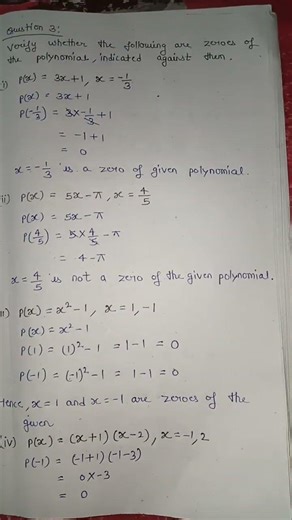 Question 3:
Verify whether the following are zeroes of
the polynomial, indicated against them.
i) P(x) = 3x+1, x = -1/3
P(x) = 3x+1
P(-1/3) = 3x-1/3 +1
= -1+1
= 0
x = -1/3 is a zero of given polynomial.
ii) P(x) = 5x-π, x = 4/5
P(x) = 5x-π
P(4/5) = 5x4/5 -π
= 4-π
x = 4/5 is not a zero of the given polynomial.
iii) P(x) = x²-1, x = 1, -1
P(x) = x²-1
P(1) = (1)²-1 = 1-1 = 0
P(-1) = (-1)²-1 = 1-1 = 0
Hence, x=1 and x=-1 are zeroes of the
given
(iv) P(x) = (x+1) (x-2), x = -1, 2
P(-1) = (-1+1) (-1-3)
= 0x-3
= 0